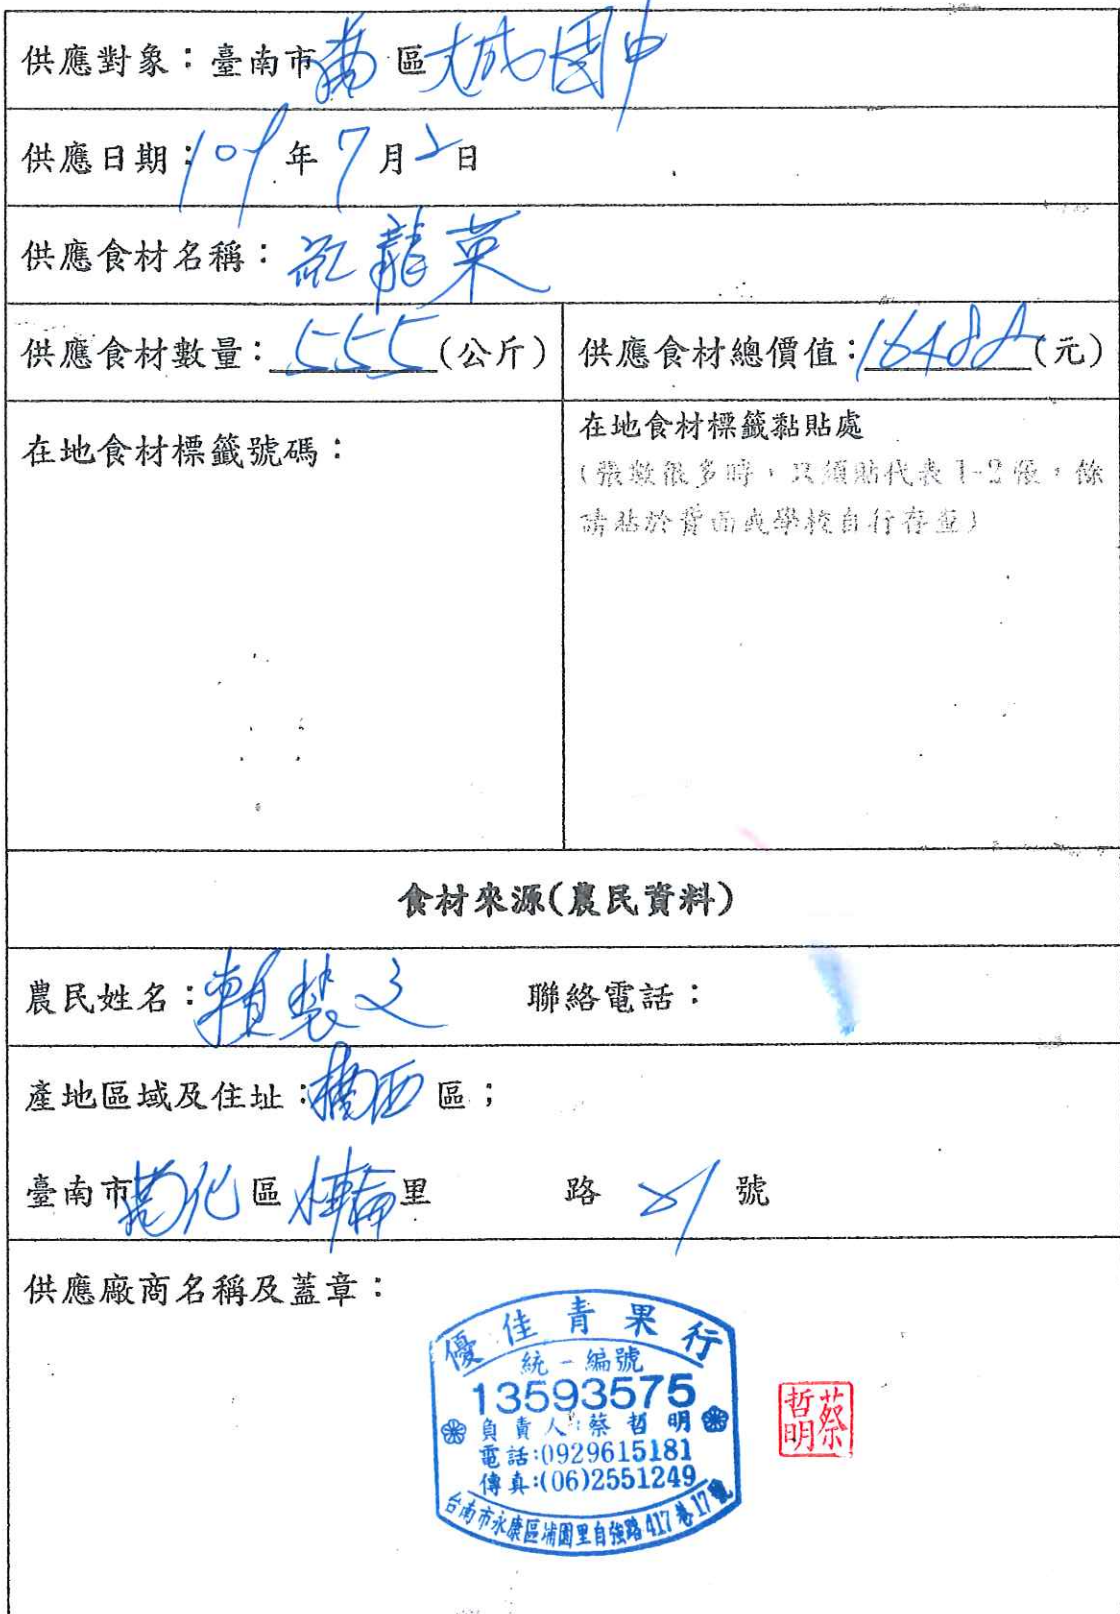 供應對象：臺南市南區大成國中
供應日期：109年7月2日
供應食材名稱：龍菜
供應食材數量：555(公斤)
供應食材總價值：(元)
在地食材標籤號碼：
在地食材標籤黏貼處
(張數很多時，只須貼代表1-2張，餘
請貼於背面或學校自行存查)
食材來源(農民資料)
農民姓名：賴文 聯絡電話：
產地區域及住址：楠西區；
臺南市化區里 路 號
供應廠商名稱及蓋章：
優佳青果行
統一編號
13593575
負責人：蔡哲明
電話:0929615181
傳真:(06)2551249
台南市永康區埔園里自強路417巷17號
蔡哲明